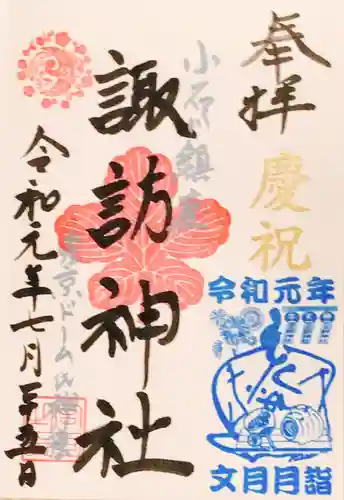 奉拝
慶祝
小石川鎮座
諏訪神社
東京ドーム氏神様
令和元年七月二十五日
令和元年
文月月詣